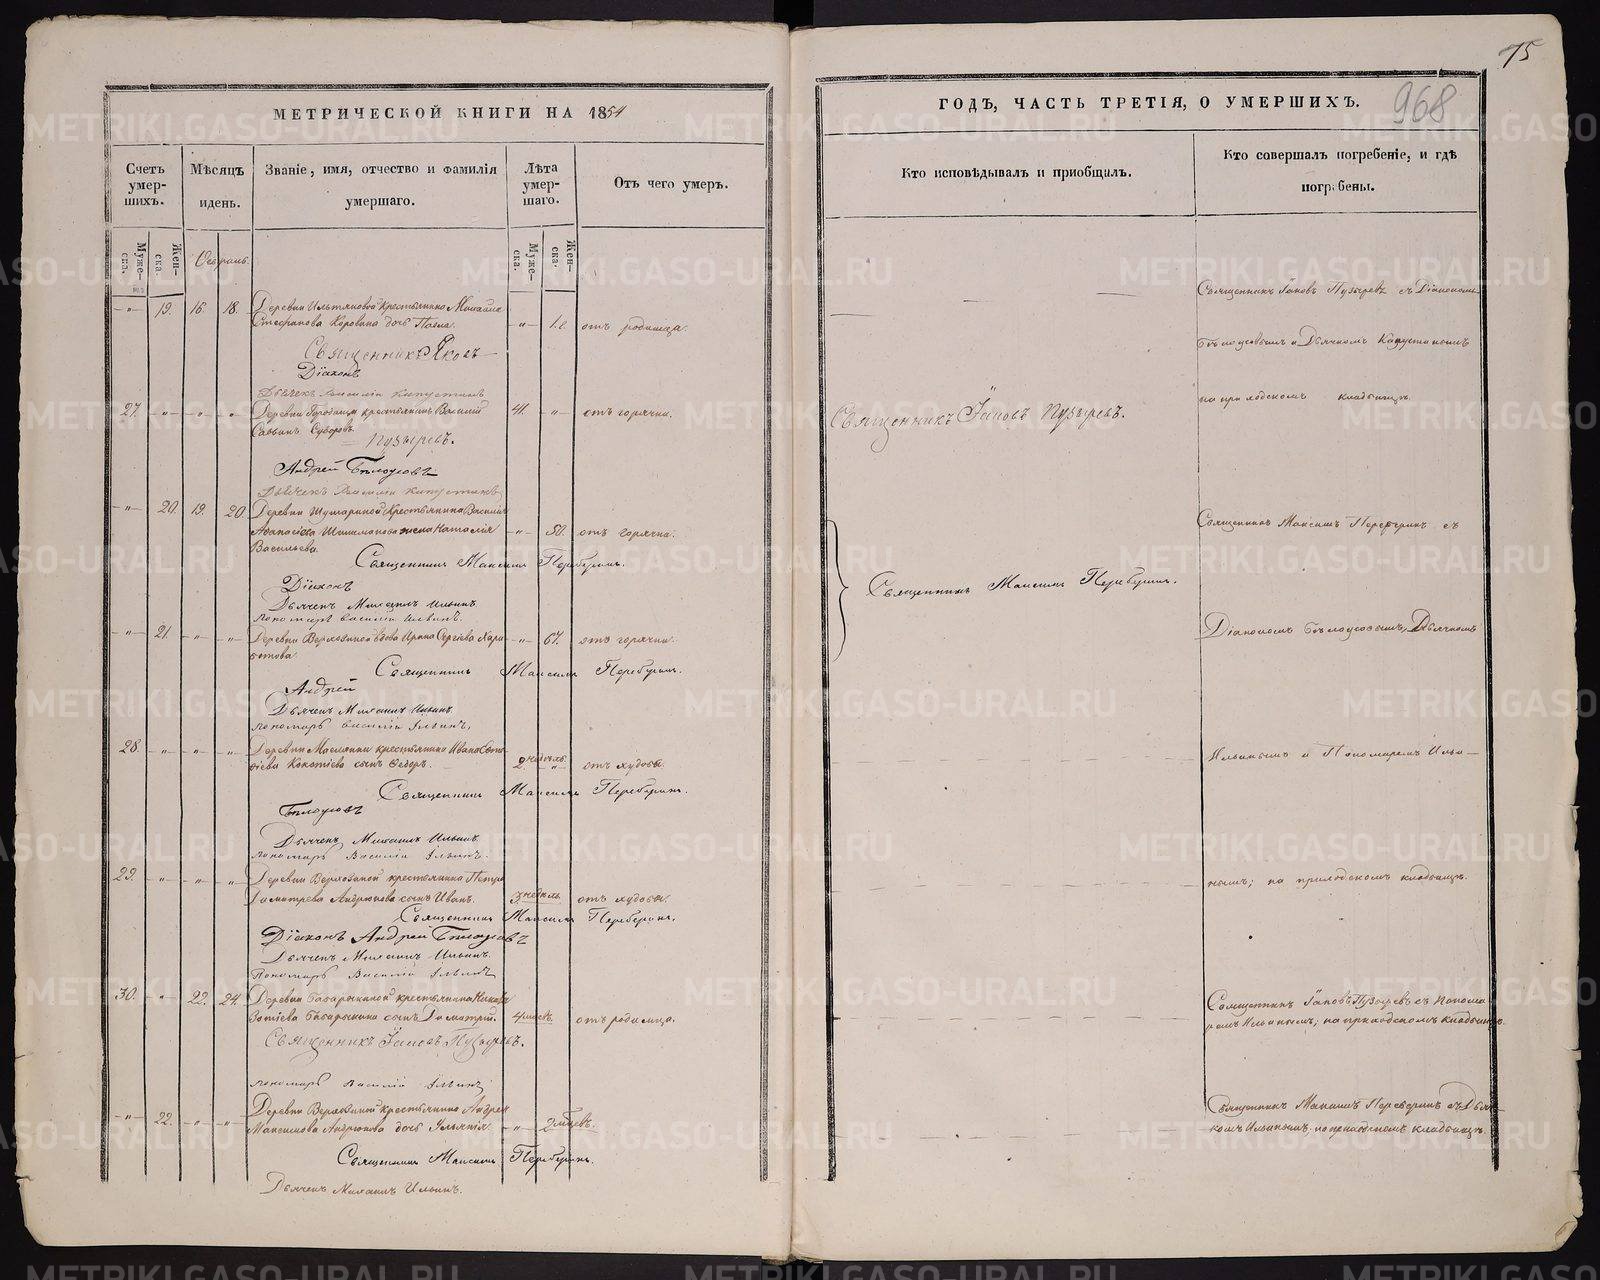 МЕТРИЧЕСКОЙ КНИГИ НА 1854
Счетъ умер-шихъ.
Мѣсяцъ и день.
Званіе, имя, отчество и фамилія умершаго.
Лѣта умер-шаго.
Отъ чего умеръ.
Муже-ска.
Жен-ска.
Муже-ска.
Жен-ска.
Февраль.
-„- 19. 16. 18. Деревни крестьянина Михаила
Стефанова Коровина дочь -„- отъ родимца.
Священникъ Яковъ
Діаконъ
Дьячекъ Василій Капустинъ
27. „ „ „ Деревни крестьянинъ Василій 41. „ отъ горячки.
Савинъ Суворовъ
Пузыревъ.
Андрей Бѣлоусовъ
Дьячекъ Василій Капустинъ
-„- 20. 19. 20. Деревни крестьянина Василія
Афанасіева жена Наталія -„- 50. отъ горячки.
Васильева.
Священникъ Максимъ Переберинъ.
Діаконъ
Дьячекъ Михаилъ Ильинъ
пономарь Василій Ильинъ.
-„- 21. „ „ Деревни вдова Ирина Сергіева Хари- -„- 67. отъ горячки.
тонова.
Священникъ Максимъ Переберинъ.
Андрей
Дьячекъ Михаилъ Ильинъ
пономарь Василій Ильинъ.
28. „ „ „ Деревни Маслянки крестьянина Ивана
сынъ Ѳедоръ. 2 недѣль. „ отъ худобы.
Священникъ Максимъ Переберинъ.
Бѣлоусовъ
Дьячекъ Михаилъ Ильинъ
пономарь Василій Ильинъ.
29. „ „ „ Деревни крестьянина Петра
Димитріева Андрюкова сынъ Иванъ. 3 недѣль. отъ худобы.
Священникъ Максимъ Переберинъ.
Діаконъ Андрей Бѣлоусовъ
Дьячекъ Михаилъ Ильинъ.
Пономарь Василій Ильинъ
30. „ 22. 24. Деревни Бабарыкиной крестьянина
Бабарыкина сынъ Димитрій. 4 мѣсяц. отъ родимца.
Священникъ Іаковъ Пузыревъ.
пономарь Василій Ильинъ
-„- 22. „ „ Деревни крестьянина Андрея
Максимова Андрюкова дочь Ульянія -„- 2 мѣсяц.
Священникъ Максимъ Переберинъ.
Дьячекъ Михаилъ Ильинъ.
75
ГОДЪ, ЧАСТЬ ТРЕТІЯ, О УМЕРШИХЪ.
968
Кто исповѣдывалъ и пріобщалъ.
Кто совершалъ погребеніе, и гдѣ погребены.
Священникъ Іаковъ Пузыревъ съ Діакономъ
Бѣлоусовымъ и Дьячкомъ Капустинымъ
на приходскомъ кладбищѣ.
Священникъ Іаковъ Пузыревъ.
Священникъ Максимъ Переберинъ съ
Священникъ Максимъ Переберинъ.
Діакономъ Бѣлоусовымъ, Дьячкомъ
Ильинымъ и Пономаремъ Ильи-
нымъ; на приходскомъ кладбищѣ.
Священникъ Іаковъ Пузыревъ съ Понома-
ремъ Ильинымъ; на приходскомъ кладбищѣ.
Священникъ Максимъ Переберинъ съ Дьяч-
комъ Ильинымъ; на приходскомъ кладбищѣ.
METRIKI.GASO-URAL.RU